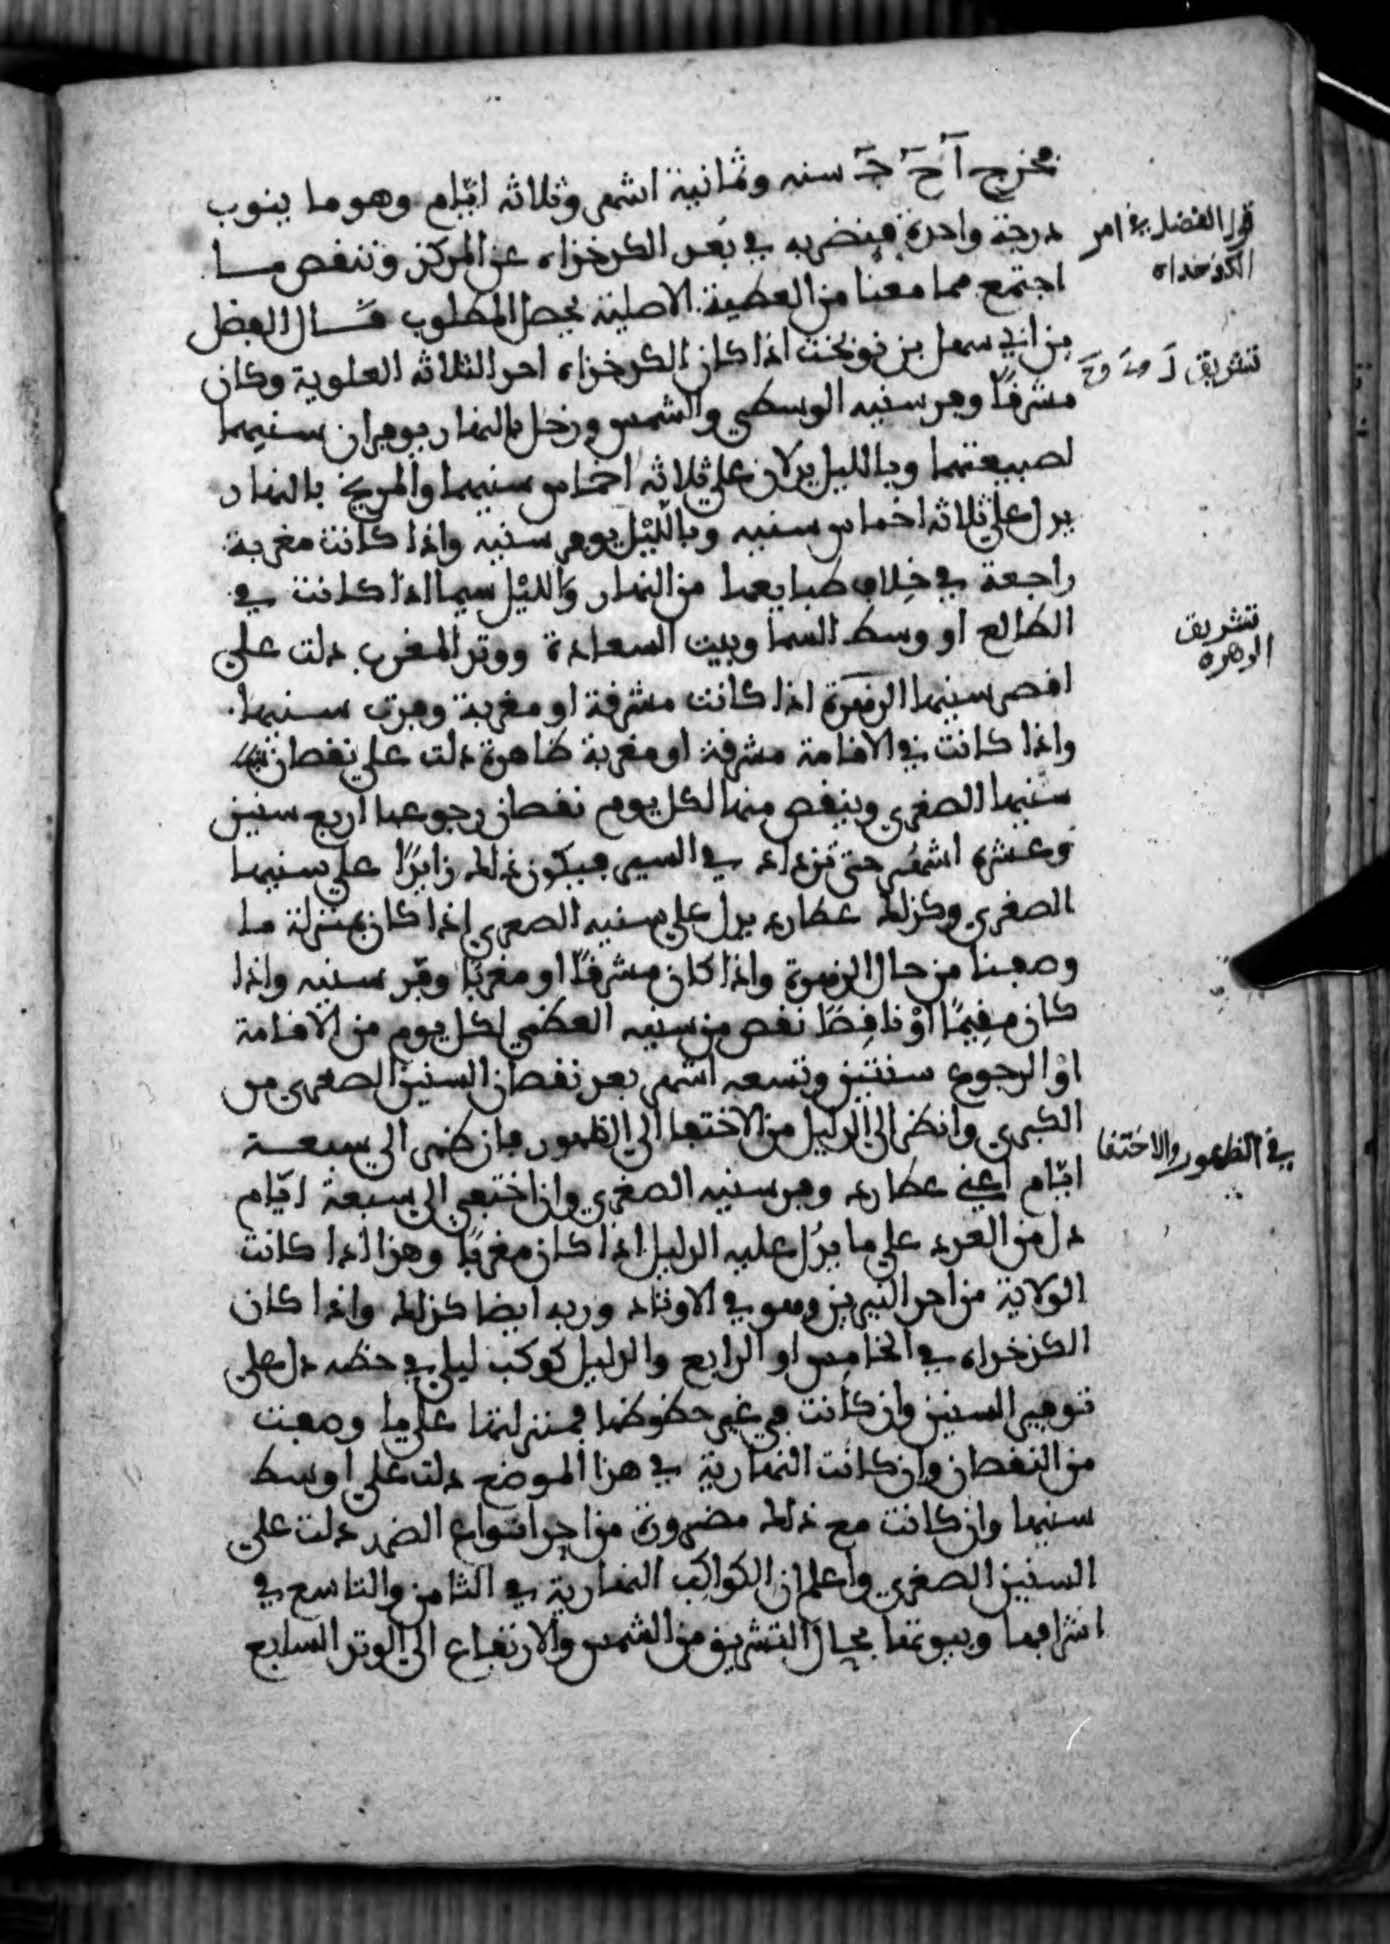 يخرج آ ح ج سنه وثمانية اشهر وثلاثه ايّام وهو ما ينوب
درجة واحدة فنضربه في بُعد الكدخداه عن المركز وننقص ما
اجتمع مما معنا من العطية الاصلية يحصل المطلوب قال الفضل
بن ابي سهل بن نوبخت اذا كان الكدخداه احد الثلاثه العلوية وكان
مشرقًا وفر سنيه الوسطي والشمس وزحل بالنهار يوفران سنيهما
لطبيعتهما وبالليل يدلان علي ثلاثه اخماس سنيهما والمريخ بالنهار
يدل علي ثلاثه اخماس سنيه وبالليْل يوفر سنيه واذا كانت مغربة
راجعة في خِلاف طبايعها من النهار والليْل سيما اذا كانت في
الطالع او وسط السما وبيت السعادة ووتد المغرب دلت علي
انقص سنيها الزهرَة اذا كانت مشرقة او مغربة وفرت سنيها
واذا كانت في الاقامة مشرقة او مغربة ظاهرة دلت علي نقصان
سنيها الصغري وينقص منها لكل يوم نقصان رجوعها اربع سنين
وعشرة اشهُر حتي تزداد في السير فيكون ذلك زايدًا علي سنيها
الصغري وكذلك عطارد يدل علي سنيه الصغري اذا كان بمنزلة ما
وصفنا من حال الزهرة واذا كان مشرقًا او مغربًا وفّر سنيه واذا
كان مقيمًا اوْ ناقِصًا نقص من سنيه العظمي لكل يوم من الاقامة
اوْ الرجوع سنتين وتسعه اشهر بعد نقصان السنين الصغري من
الكبري وانظر الي الدليل من الاختفا الي الظهور فان ظهر الي سبعة
ايّام اعني عطارد وفر سنيه الصغري وان اختفي الي سبعة ايّام
دل من العدد علي ما يدُل عليه الدليل اذا كان مغربًا وهذا اذا كانت
الولاية من احد النيرين وهو في الاوتاد وربه ايضا كذلك واذا كان
الكدخداه في الخامِس او الرابع والدليل كوكب ليلي في حظه دل علي
توفير السنين وان كانت في غير حظوظها فمنزلتها علي ما وصفت
من النقصان وان كانت النهارية في هذا الموضع دلت علي اوسط
سنيها وان كانت مع ذلك مضرورة من احد انواع الضرر دلت علي
السنين الصغري واعلم ان الكواكب النهارية في الثامن والتاسع في
اشرافها وبيوتها بحال التشريق من الشمس والارتفاع الي الوتد السابع
قول الفضل في امر
الكدخداه
تشريق
تشريق
الزهره
في الظهور والاختفا